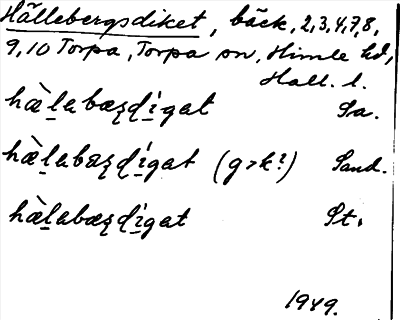 Hällebergsdiket, bäck, 2,3,4,7,8,
9,10 Torpa, Torpa sn, Himle hd,
Hall. l.
hæ̀l̠ebæʂḍí̠gat Sa.
hæ̀l̠ebæʂḍí̠gat (g>k?) Sand.
hæ̀l̠abæʂḍí̠gat St.
1949.